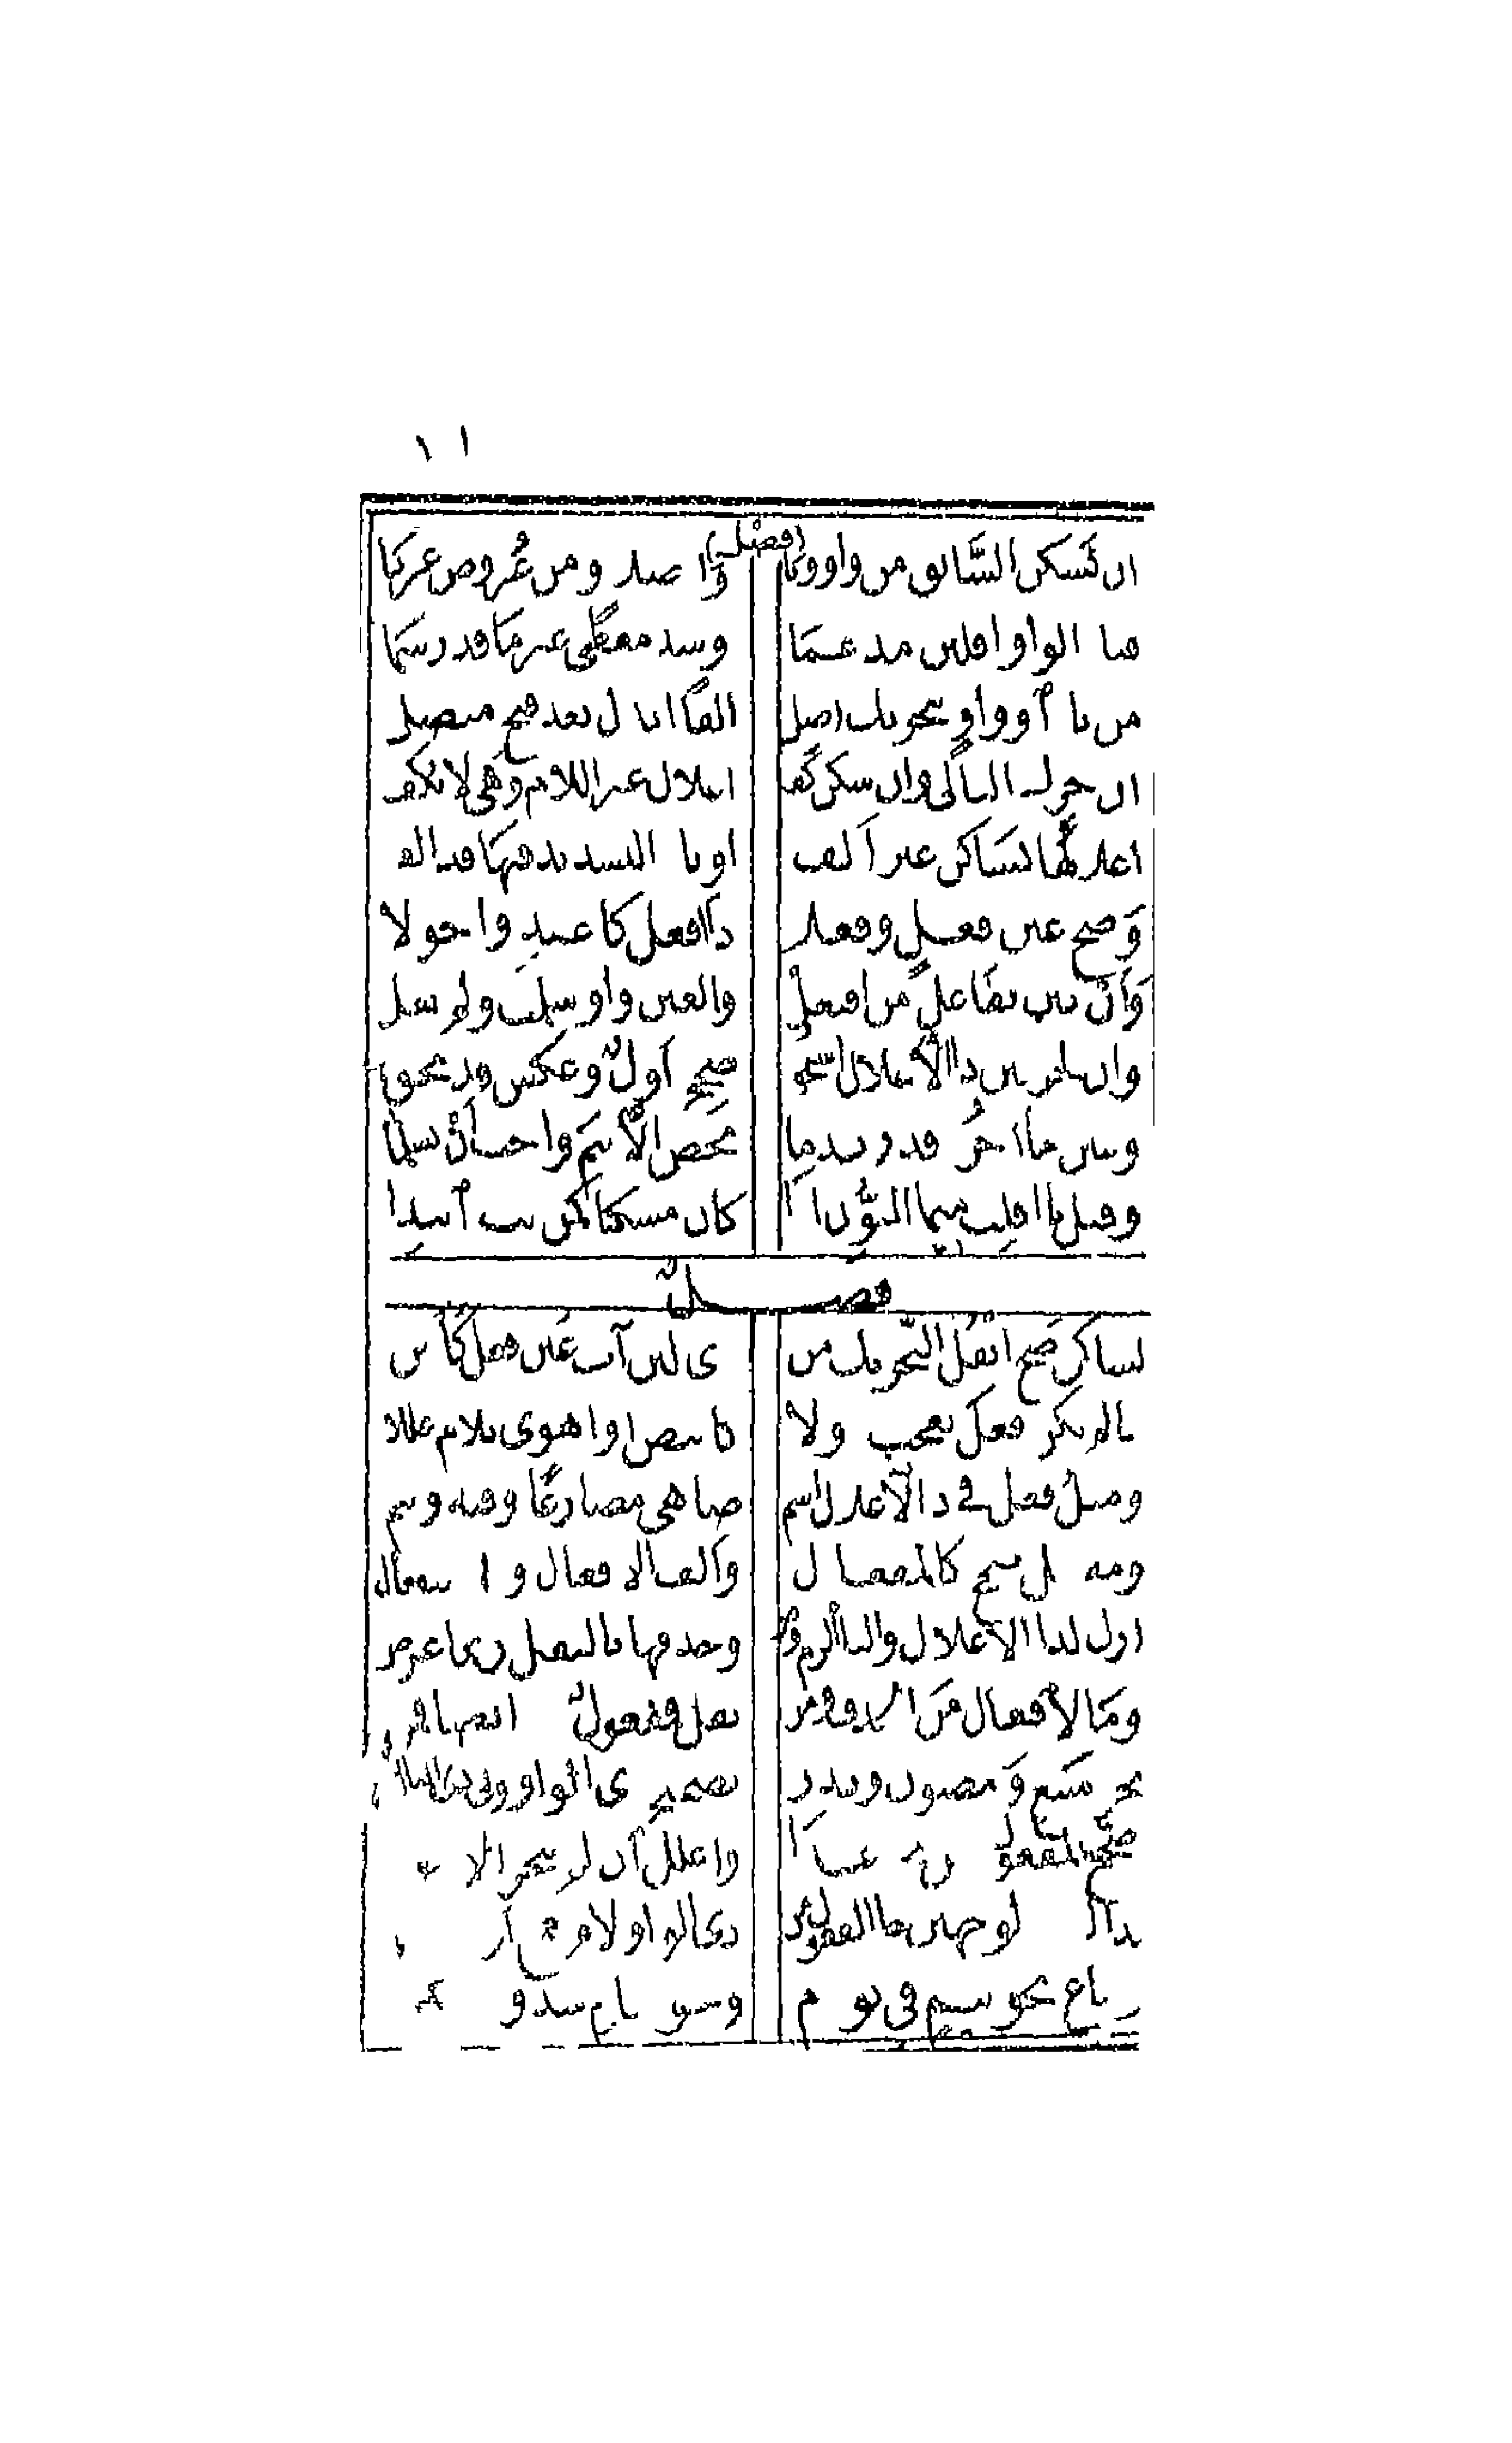 ١١
(فصل)
ان يَسكن السَّابق من واو ويا واتصلا ومن عُروض عَريَا
فياء الواو اقلبن مدغمَا وشذ معطًى غير مَا قد رسمَا
من ياء أو واوٍ بتحريك اصل الفًا ابدل بعد فتح متصل
ان حرك التَّالى وان سكن كف اعلال غير اللام وَهى لا يكف
اعلالُها بسَاكن غير ألف او يا التشديد فيهَا قد الف
وَصح عين فعلٍ وفعلا ذا افعل كاغيدٍ واحولا
وَانْ يبن تفاعلٌ من افتعلْ والعين واو سلمت ولم تعل
وان لحرفين ذا الاعلال استحق صحح أولٌ وعكس قد يحق
وعين ما آخرُه قد زيد ما يَخص الاسمَ واجب أنْ يسلما
وقبل با اقلب ميما النُّون اذا كان مسكنا كمن بت أنبذا
فصــلٌ
لساكن صَح انقل التَّحريك من ذى لين آت عَين فعل كَأبن
مالم يكن فعل تعجب ولا كابيض او اهوى بلام عللا
ومثل فعل فى ذا الاعلال اسم ضاهى مضارعًا وفيه وسم
ومفعل صحح كالمفعال وألف الافعال واستفعال
ازل لذا الاعلال والتا الزم عوض وحذفها بالنقل ربما عرض
ومَا لافعال مَن الحذف ومن نقل فمفعولٌ ايضا قمن
نحو مَبيع وَمصون وندر تصحيح ذى الواو وفى ذى اليا
وصحح المفعول من عدا واعلل أن لم تتحر الا
ذا وجهين جا الفعول من ذى الواو لام جمع أو
وشاع نحو نيم فى نوم ونحو نيام شذو